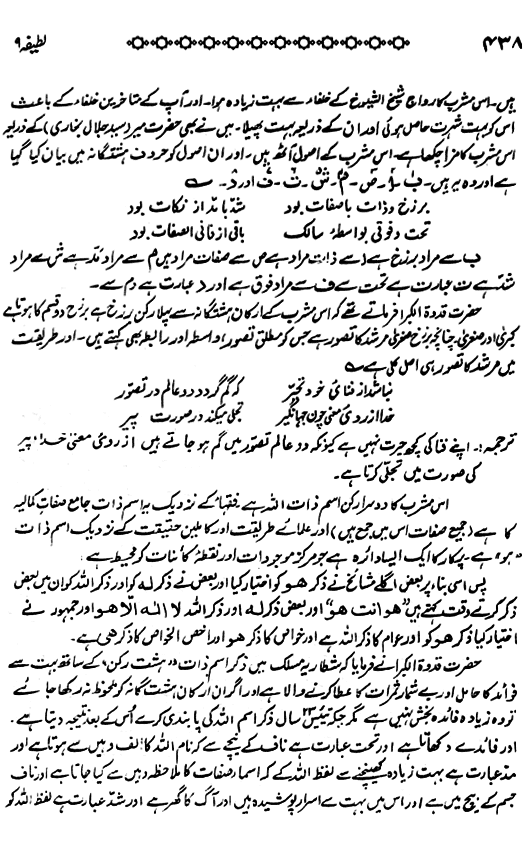 ۴۳۸
لطیفہ ۹
ہیں۔ اس مشرب کا رواج شیخ الشیوخ کے خلفاء سے بہت زیادہ ہوا۔ اور آپ کے متاخرین خلفاء کے باعث
اس کو بہت شہرت حاصل ہوئی اور ان کے ذریعہ بہت پھیلا۔ میں نے بھی حضرت میر (سید جلال بخاری) کے ذریعہ
اس مشرب کا مزا چکھا ہے۔ اس مشرب کے اصول آٹھ ہیں۔ اور ان اصول کو حروف ہشتگانہ میں بیان کیا گیا
ہے اور وہ یہ ہیں۔ ب۔ ا۔ ص۔ م۔ ش۔ ت۔ ف اور د۔
برزخ و ذات با صفات بود شد با مد از نکات بود
تحت و فوقی بواسطۂ سالک باقی از فانی الصفات بود
ب سے مراد برزخ ہے ا سے ذات مراد ہے ص سے صفات مراد ہیں م سے مراد مد ہے ش سے مراد
شد ہے ت عبارت ہے تحت سے ف سے مراد فوق ہے اور د عبارت ہے دم سے۔
حضرت قدوۃ الکبرا فرماتے تھے کہ اس مشرب کے ارکان ہشتگانہ سے پہلا رکن برزخ ہے برزخ دو قسم کا ہوتا ہے
کبریٰ اور صغریٰ، چنانچہ برزخ صغریٰ مرشد کا تصور ہے جس کو مطلق تصور، واسطہ اور رابطہ بھی کہتے ہیں۔ اور طریقت
میں مرشد کا تصور ہی اصل کلی ہے۔
نباشد از فنائی خود تحیر کہ گم گردد دو عالم در تصور
خدا از روئ معنی چون جہانگیر تجلی میکند در صورت پیر
ترجمہ:۔ اپنے فنا کی کچھ حیرت نہیں ہے کیونکہ دو عالم تصور میں گم ہو جاتے ہیں از روئ معنی خدا، پیر
کی صورت میں تجلی کرتا ہے۔
اس مشرب کا دوسرا رکن اسم ذات اللہ ہے۔ فقہا کے نزدیک یہ اسم ذات جامع صفات کمالیہ
کا ہے (جمیع صفات اس میں جمع ہیں) اور علمائے طریقت اور کاملین حقیقت کے نزدیک اسم ذات
"ہو" ہے۔ پرکار کا ایک ایسا دائرہ ہے جو مرکز موجودات اور نقطۂ کائنات کو محیط ہے۔
پس اسی بنا، پر بعض اگلے مشائخ نے ذکر ھو کو اختیار کیا اور بعض نے ذکر لہ کو اور ذکر اللہ کو ان میں بعض
ذکر کرتے وقت کہتے ہیں "ھو انت ھو" اور بعض ذکر لہ اور ذکر اللہ لا الٰہ الا ھو اور جمہور نے
اختیار کیا ذکر ھو کو اور عوام کا ذکر اللہ ہے اور خواص کا ذکر ھو اور اخص الخواص کا ذکر ھی ہے۔
حضرت قدوۃ الکبرا نے فرمایا کہ شطاریہ مسلک میں ذکر اسم ذات "ہشت رکن" کے ساتھ بہت سے
فوائد کا حامل اور بے شمار ثمرات کا عطا کرنے والا ہے اور اگر ان ارکان ہشتگانہ کو ملحوظ نہ رکھا جائے
تو وہ زیادہ فائدہ بخش نہیں ہے مگر جبکہ تیئیس ۲۳ سال ذکر اسم اللہ کی پابندی کرے اس کے بعد نتیجہ دیتا ہے۔
اور فائدے دکھاتا ہے اور تحت عبارت ہے ناف کے نیچے سے کہ نام اللہ کا الف وہیں سے ہوتا ہے اور
مد عبارت ہے بہت زیادہ کھینچنے سے لفظ اللہ کے کہ اسماء صفات کا ملاحظہ وہیں سے کیا جاتا ہے اور ناف
جسم کے بیچ میں ہے اور اس میں بہت سے اسرار پوشیدہ ہیں اور آگ کا گھر ہے اور شد عبارت ہے لفظ اللہ کو